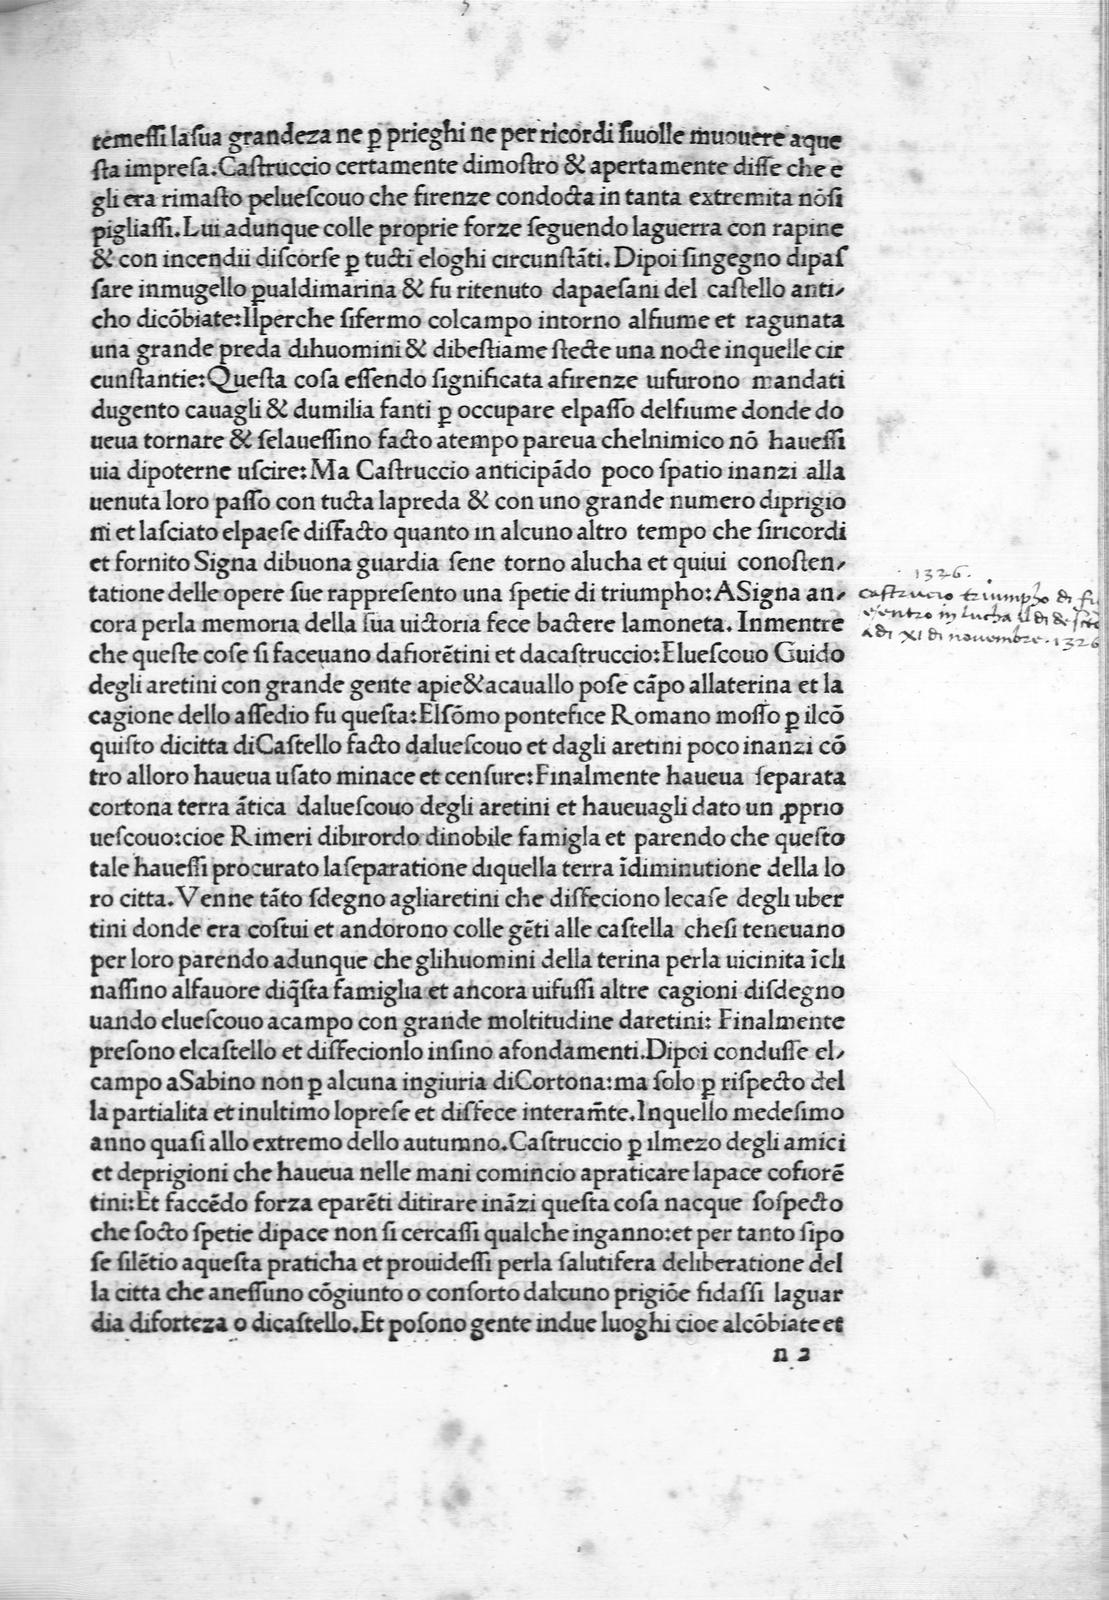 temeſſi laſua grandeza ne ꝑ prieghi ne per ricordi ſiuolle muouere aque
ſta impreſa.Caſtruccio certamente dimoſtro & apertamente diſſe che e
gli era rimaſto pelueſcouo che firenze condocta in tanta extremita nōſi
pigliaſſi.Lui adunque colle proprie forze ſeguendo laguerra con rapine
& con incendii diſcorſe ꝑ tucti eloghi circunſtāti.Dipoi ſingegno dipaſ
ſare inmugello ꝑualdimarina & fu ritenuto dapaeſani del caſtello anti-
cho dicōbiate:Ilperche ſifermo colcampo intorno alfiume et ragunata
una grande preda dihuomini & dibeſtiame ſtecte una nocte inquelle cir
cunſtantie:Queſta coſa eſſendo ſignificata afirenze uifurono mandati
dugento cauagli & dumilia fanti ꝑ occupare elpaſſo delfiume donde do
ueua tornare & ſelaueſſino facto atempo pareua chelnimico nō haueſſi
uia dipoterne uſcire:Ma Caſtruccio anticipādo poco ſpatio inanzi alla
uenuta loro paſſo con tucta lapreda & con uno grande numero diprigio
ni et laſciato elpaeſe disfacto quanto in alcuno altro tempo che ſiricordi
et fornito Signa dibuona guardia ſene torno alucha et quiui conoſten-
tatione delle opere ſue rappreſento una ſpetie di triumpho:ASigna an-
cora perla memoria della ſua uictoria fece bactere lamoneta.Inmentre
che queſte coſe ſi faceuano dafiorētini et dacaſtruccio:Elueſcouo Guido
degli aretini con grande gente apie&acauallo poſe cāpo allaterina et la
cagione dello aſſedio fu queſta:Elſōmo pontefice Romano moſſo ꝑ ilcō
quiſto dicitta diCaſtello facto dalueſcouo et dagli aretini poco inanzi cō
tro alloro haueua uſato minace et cenſure:Finalmente haueua ſeparata
cortona terra ātica dalueſcouo degli aretini et haueuagli dato un ꝓprio
ueſcouo:cioe Rimeri dibirordo dinobile famigla et parendo che queſto
tale haueſſi procurato laſeparatione diquella terra īdiminutione della lo
ro citta.Venne tāto ſdegno agliaretini che disfeciono lecaſe degli uber
tini donde era coſtui et andorono colle gēti alle caſtella cheſi teneuano
per loro parendo adunque che glihuomini della terina perla uicinita īcli
naſſino alfauore diq̄ſta famiglia et ancora uifuſſi altre cagioni diſdegno
uando elueſcouo acampo con grande moltitudine daretini: Finalmente
preſono elcaſtello et disfecionlo inſino afondamenti.Dipoi conduſſe el-
campo aSabino non ꝑ alcuna ingiuria diCortona:ma ſolo ꝑ riſpecto del
la partialita et inultimo lopreſe et disfece interam̄te.Inquello medeſimo
anno quaſi allo extremo dello autumno.Caſtruccio ꝑ ilmezo degli amici
et deprigioni che haueua nelle mani comincio apraticare lapace cofiorē
tini:Et faccēdo forza eparēti ditirare ināzi queſta coſa nacque ſoſpecto
che ſocto ſpetie dipace non ſi cercaſſi qualche inganno:et per tanto ſipo
ſe ſilētio aqueſta praticha et prouideſſi perla ſalutifera deliberatione del
la citta che aneſſuno cōgiunto o conſorto dalcuno prigiōe fidaſſi laguar
dia diforteza o dicaſtello.Et poſono gente indue luoghi cioe alcōbiate et
n 2
1326.
caſtruccio triumpho di
in lucha
adi XI di novembre. 1326